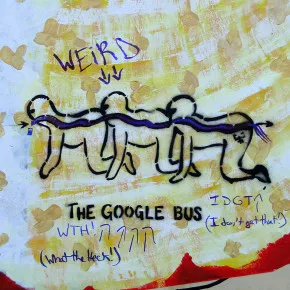 WEIRD
THE GOOGLE BUS
WTH!
(What the Heck!)
IDGT
(I don't get that!)